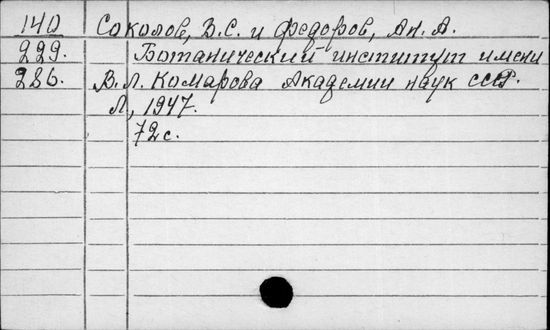 140 Соколов, В.С. и Федоров, Ан. А.
229. Ботанический институт имени
286. В. Л. Комарова Академии наук СССР.
Л, 1947.
72 с.